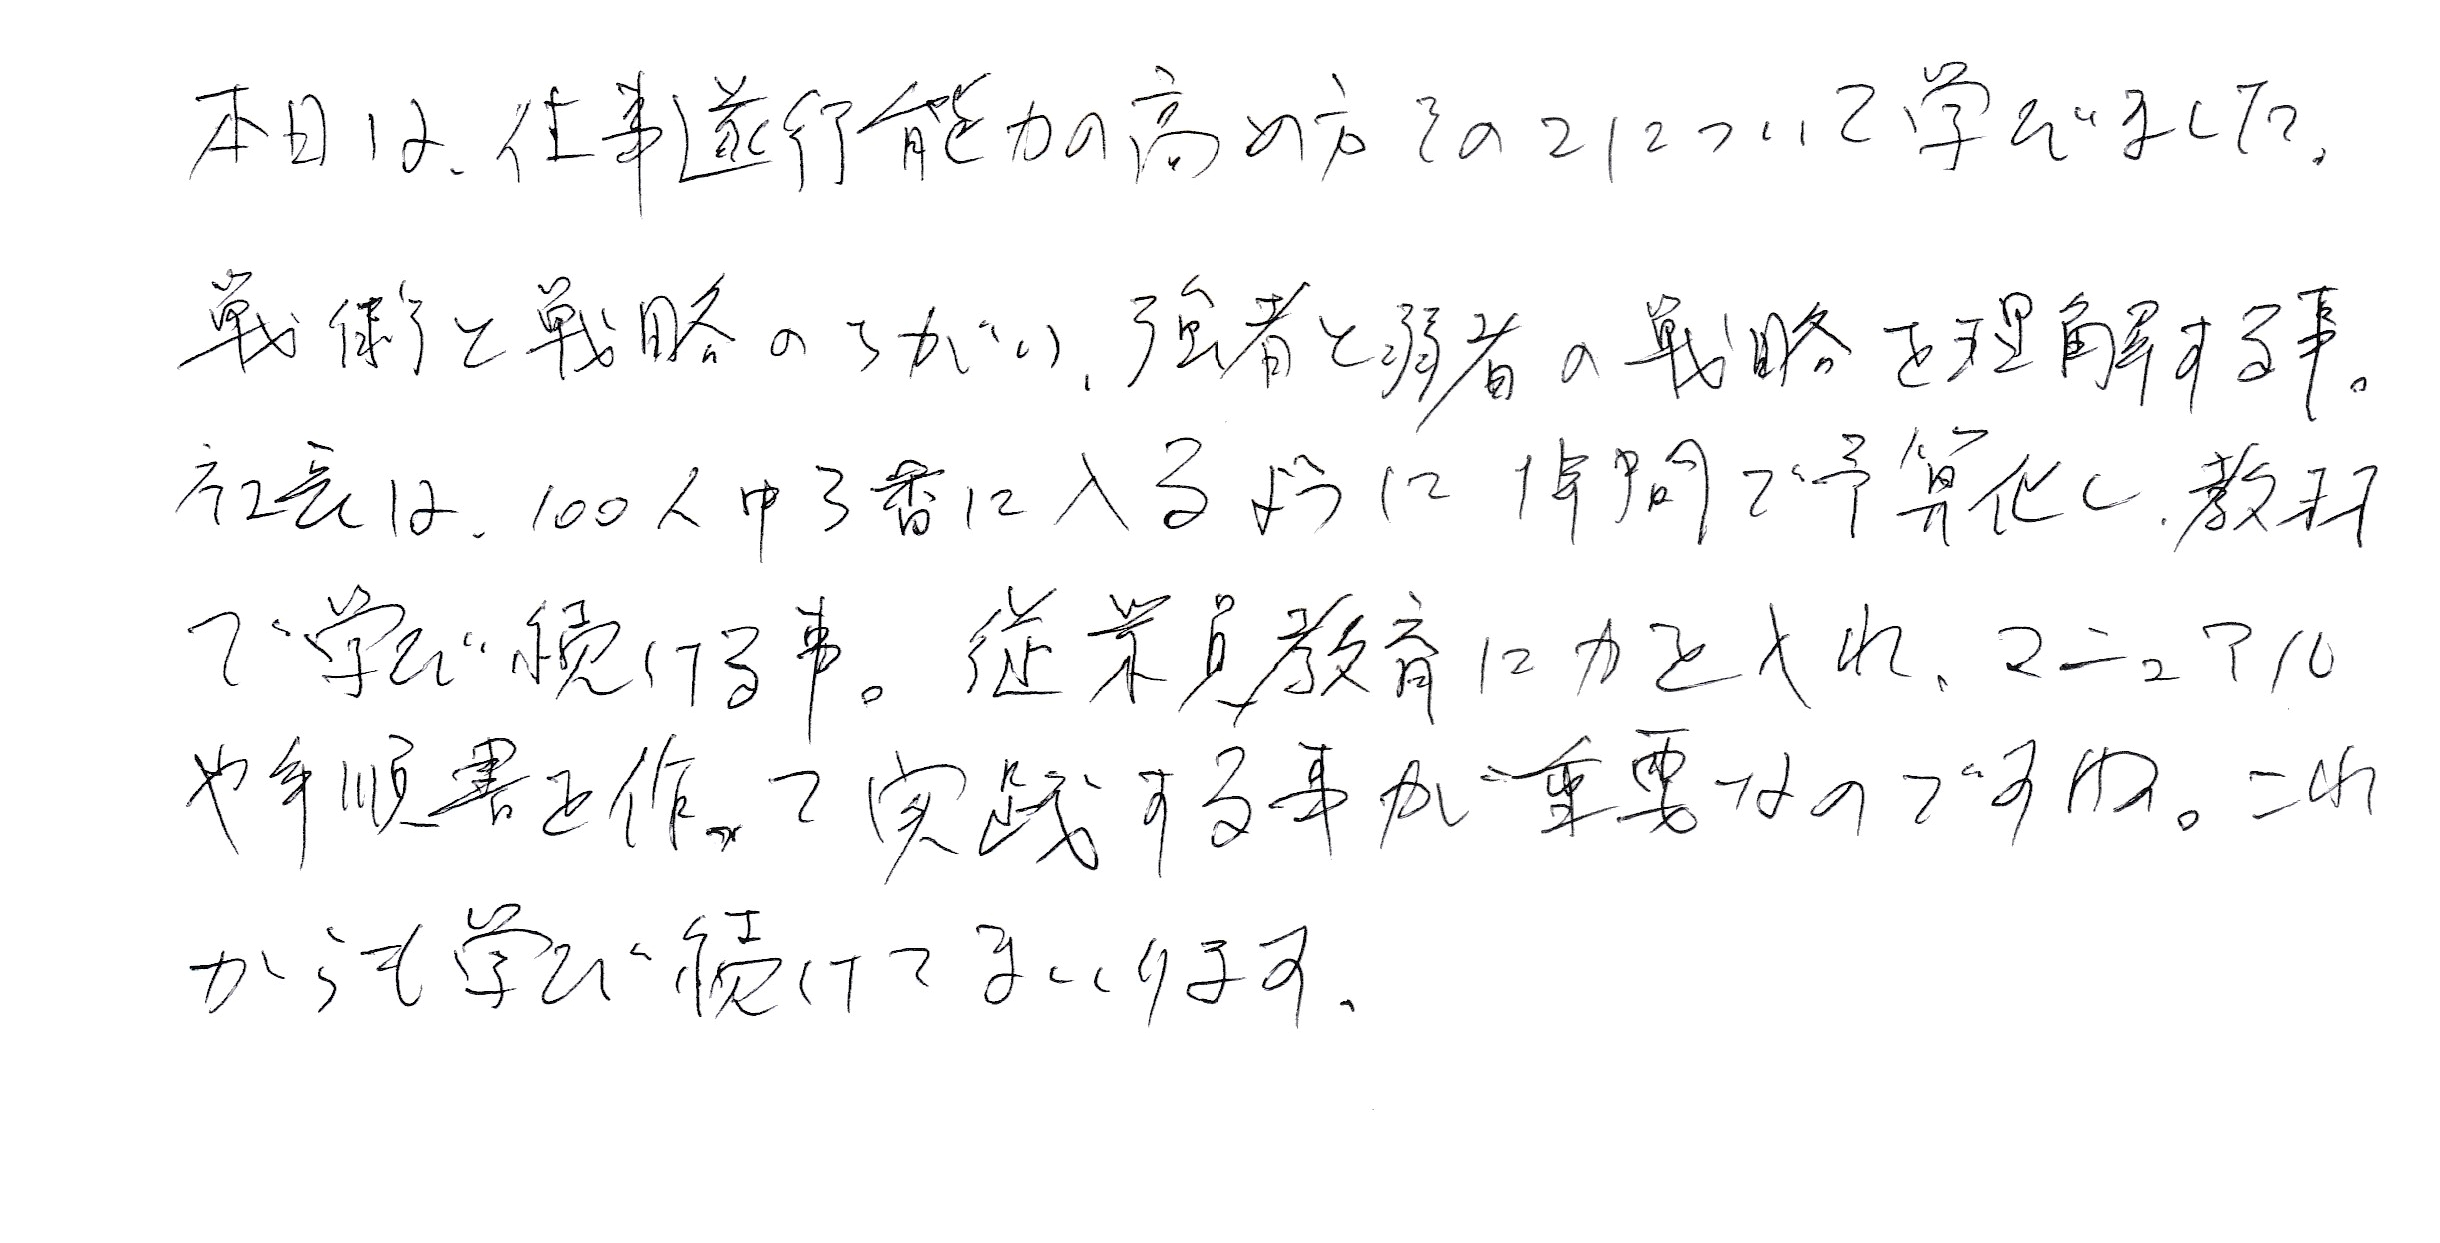 本日は、仕事遂行能力の高め方その2について学びました。
戦術と戦略のちがい、強者と弱者の戦略を理解する事。
社長は、100人中3番に入るように1年間で予算化し、教材
で学び続ける事。従業員教育に力を入れ、マニュアル
や手順書を作って実践する事が重要なのですね。これ
からも学び続けてまいります。